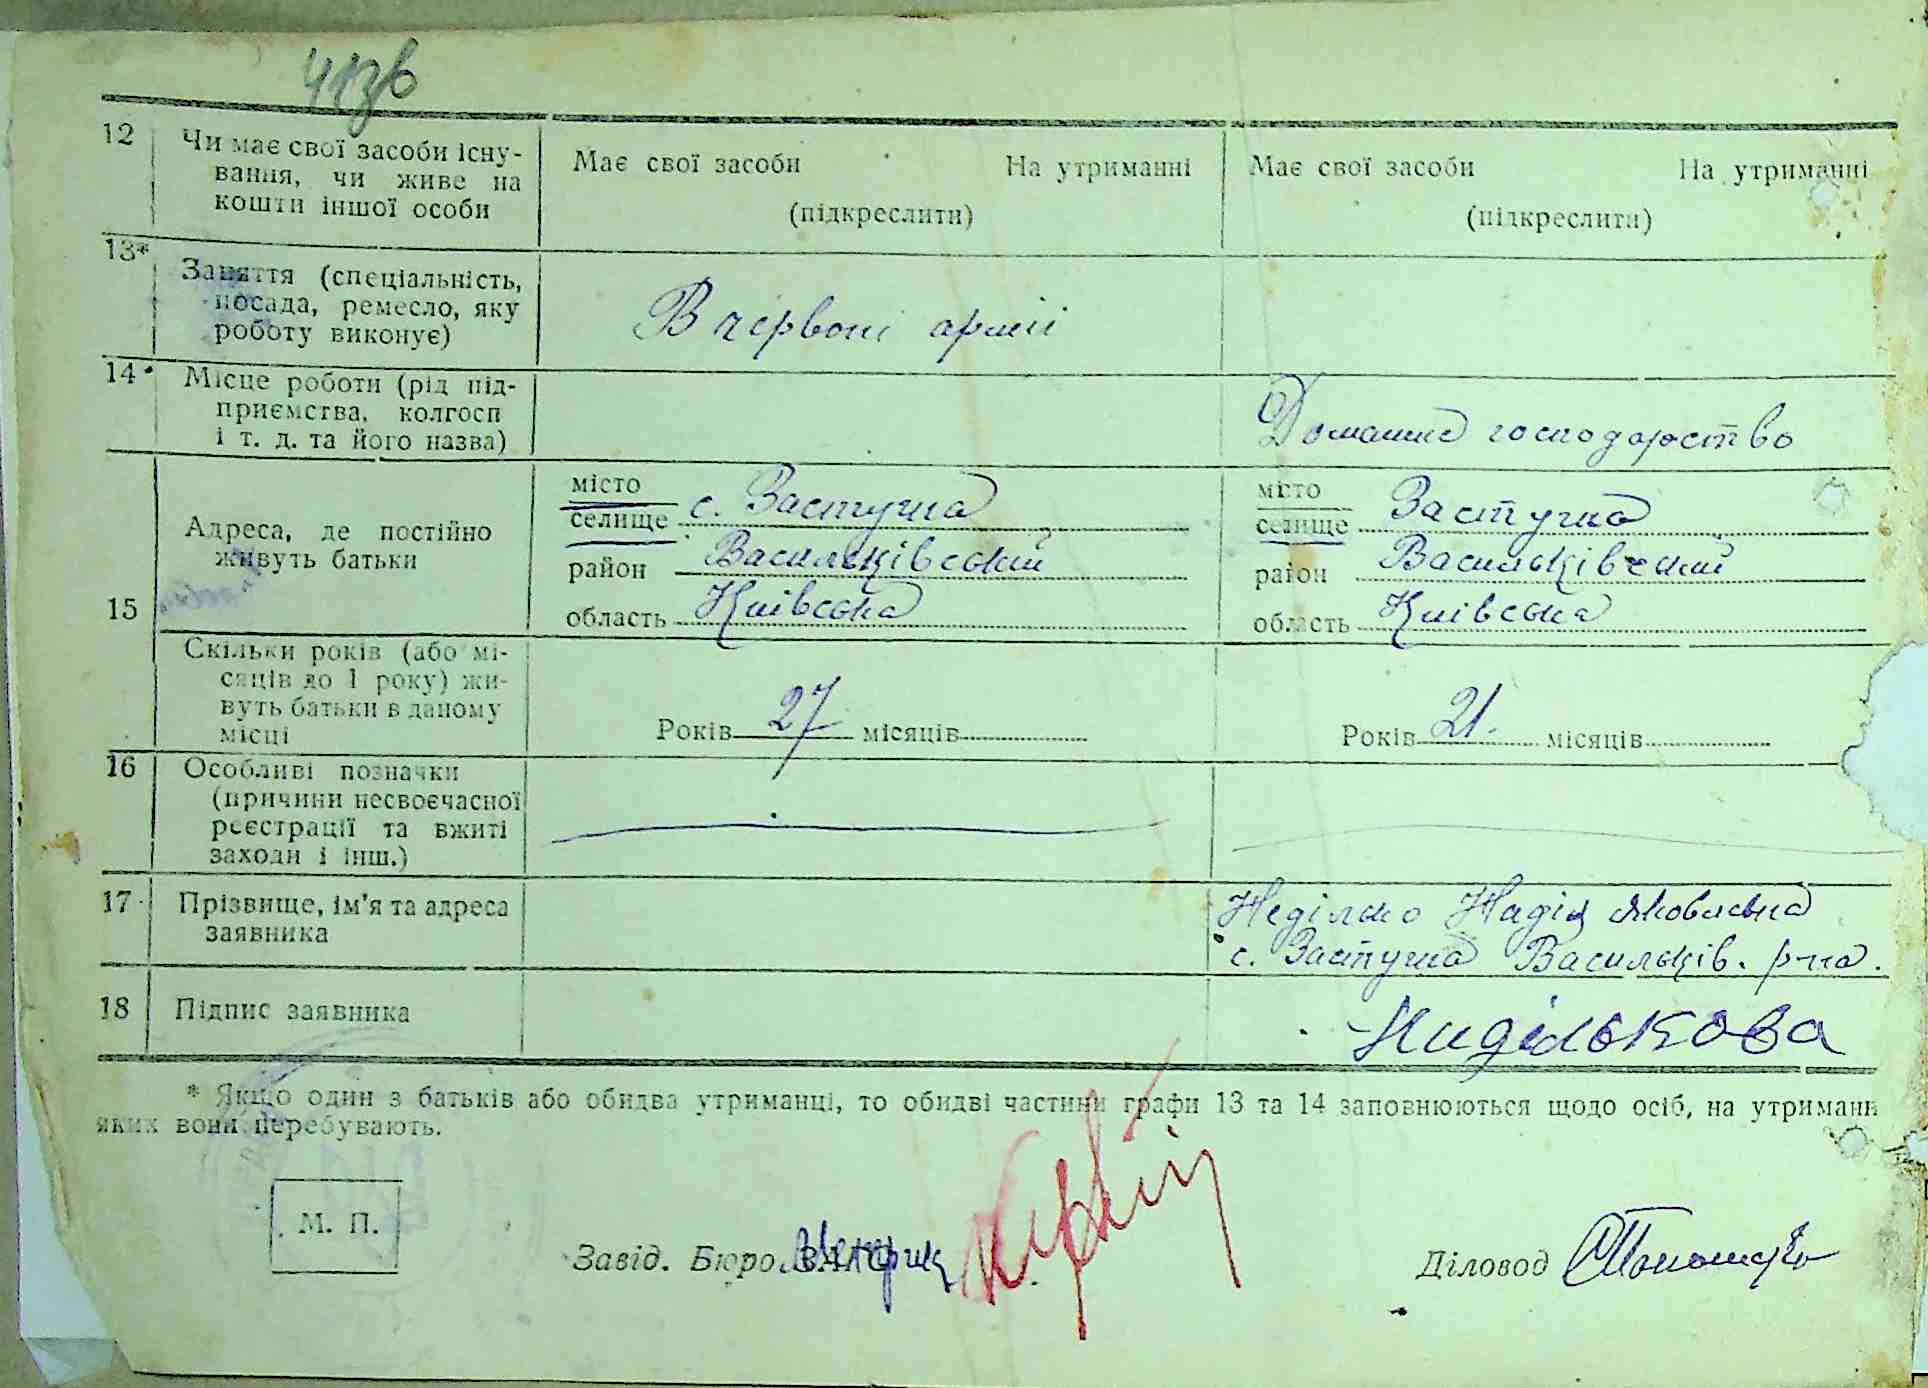 12
Чи має свої засоби існу-
вання, чи живе на
кошти іншої особи
Має свої засоби На утриманні
(підкреслити)
Має свої засоби На утриманні
(підкреслити)
13*
Заняття (спеціальність,
посада, ремесло, яку
роботу виконує)
В червоні армії
14
Місце роботи (рід під-
приємства, колгосп
і т. д. та його назва)
Домашнє господарство
15
Адреса, де постійно
живуть батьки
місто
селище с. Застугна
район Васильківський
область Київська
місто
селище Застугна
район Васильківський
область Київська
Скільки років (або мі-
сяців до 1 року) жи-
вуть батьки в даному
місці
Років 27 місяців
Років 21. місяців
16
Особливі позначки
(причини несвоєчасної
реєстрації та вжиті
заходи і інш.)
17
Прізвище, ім'я та адреса
заявника
Неділько Надія Яковлевна
с. Застугна Васильків. р-на.
18
Підпис заявника
Нидількова
* Якщо один з батьків або обидва утриманці, то обидві частини графи 13 та 14 заповнюються щодо осіб, на утриманн
яких вони перебувають.
М. П.
Завід. Бюро ЗАГС
Діловод